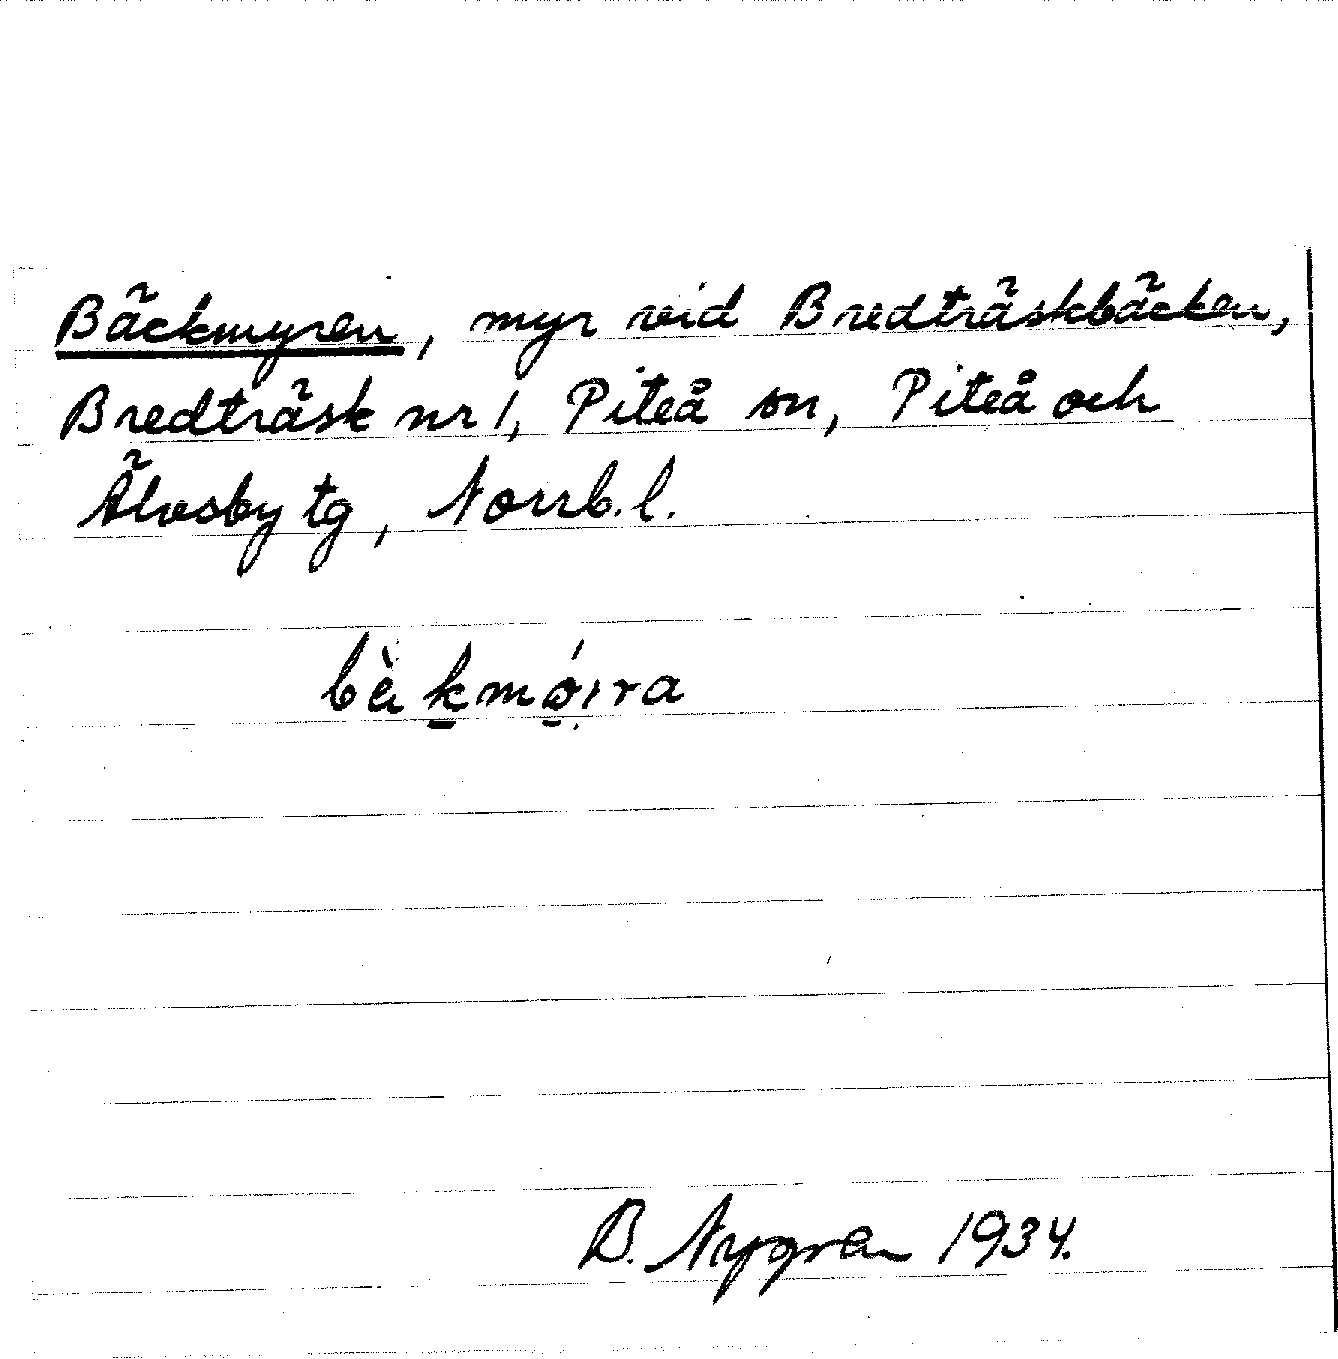 Bäckmyren, myr vid Bredträskbäcken,
Bredträsk nr 1, Piteå sn, Piteå och
Älvsby tg, Norrb. l.
bèkmǿira
B. Nygren 1934.